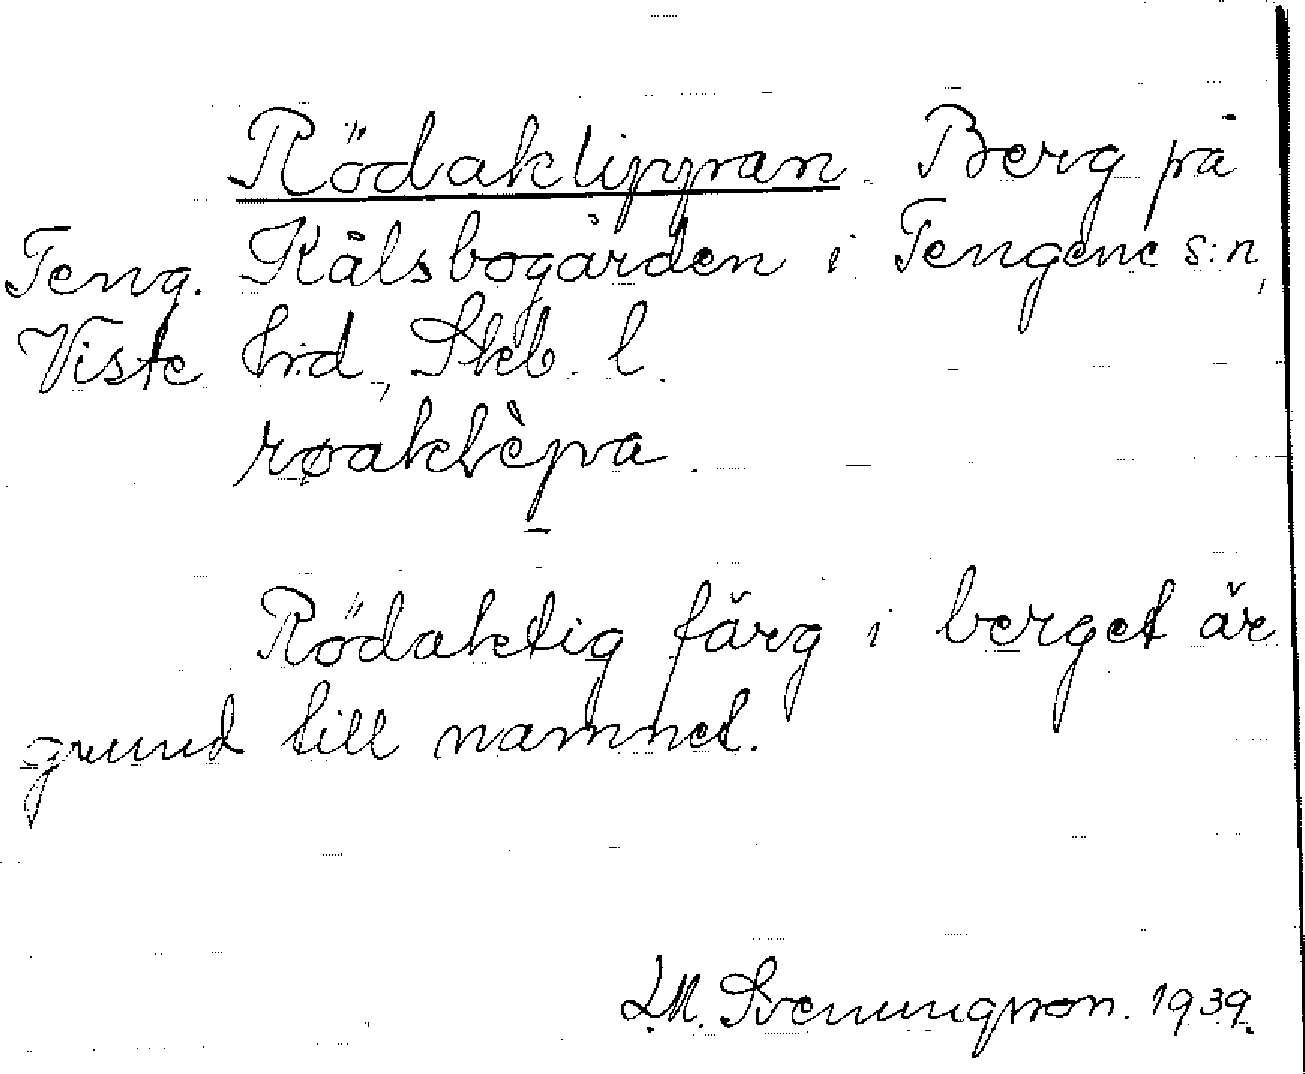 Rödaklippan. Berg på
Teng. Kålsbogården i Tengene s:n,
Viste hrd, Skb. l.
røaklèpa.
Rödaktig färg i berget är
grund till namnet.
L.M. Svenungsson. 1939.